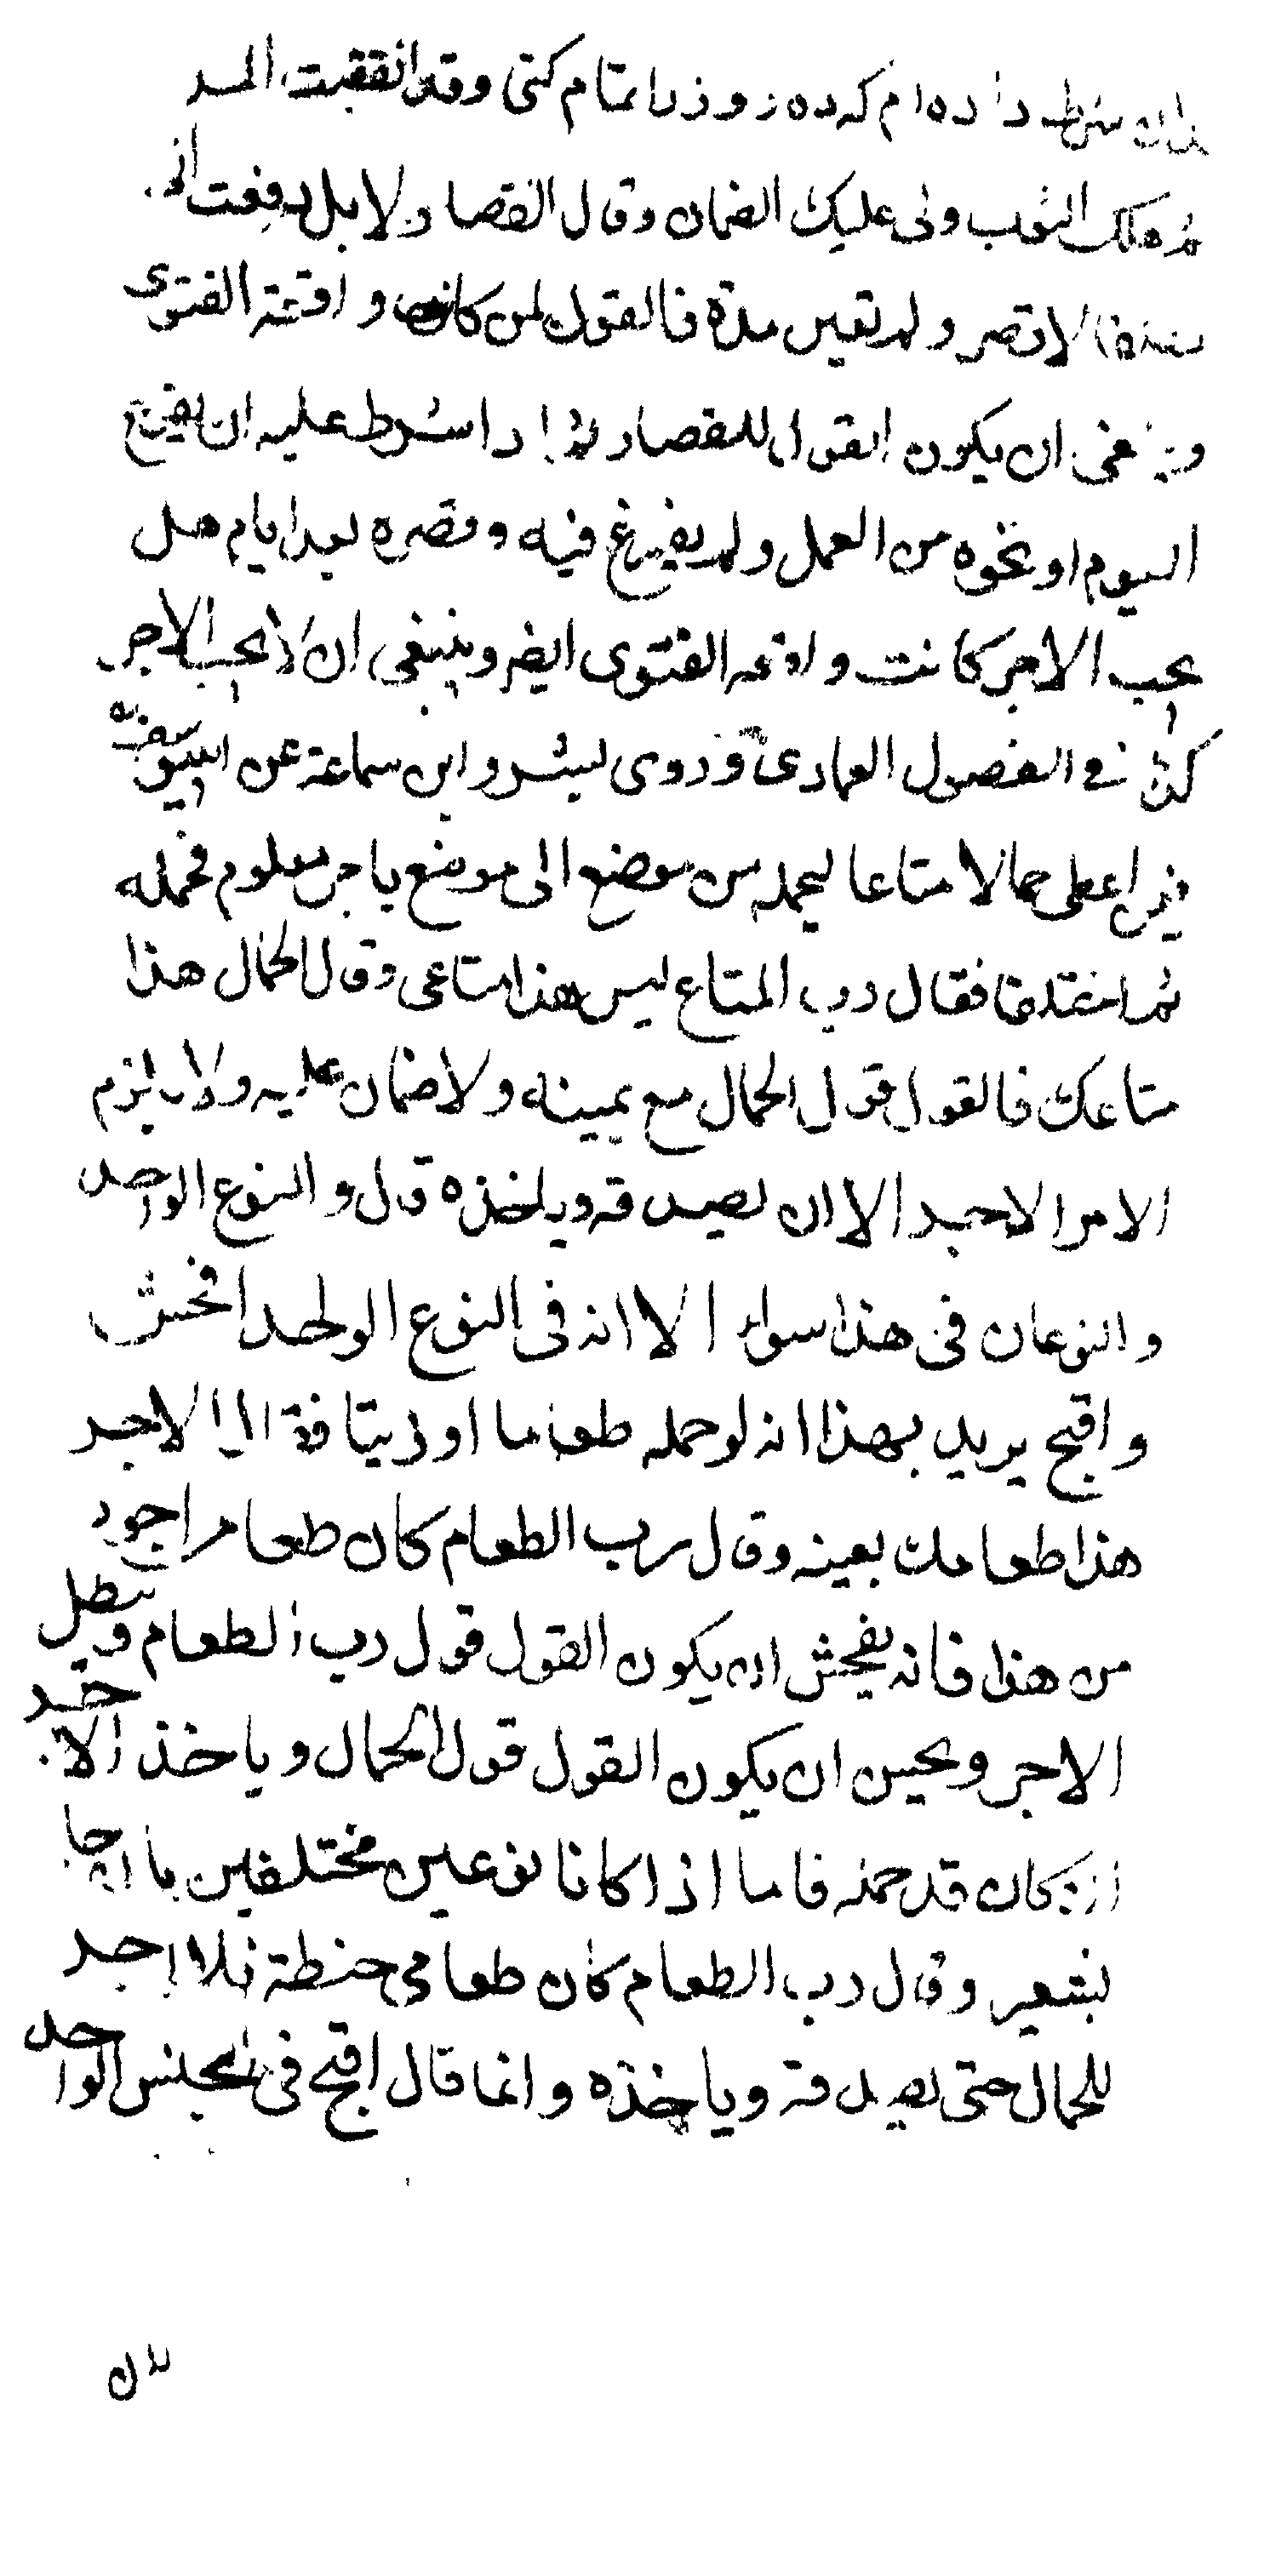 شرط داده ام كه ده روز را تمام كنى وقد انقضت المد
ثم هلك الثوب ولى عليك الضمان وقال القصار لا بل دفعت الى
لاقصر ولم تعين مدة فالقول لمن كانت واقعة الفتوى
وينبغى ان يكون القول للقصار شرط عليه ان يفرغ
اليوم او نحوه من العمل ولم يفرغ فيه وقصره بعد ايام هل
يجب الاجر كانت واقعة الفتوى ايضر وينبغى ان لا يجب الاجر
كذا فى الفصول العمادى وروى بشر وابن سماعة عن ابى يوسف ره
فيمن اعطى حمالا متاعا ليحمله من موضع الى موضع باجر معلوم فحمله
ثم اختلفا فقال رب المتاع ليس هذا متاعى وقال الحمال هذا
متاعك فالقول قول الحمال مع يمينه ولا ضمان عليه ولا يلزم
الامر الاجر الا ان يصدقه وياخذه قال والنوع الواحد
والنوعان فى هذا سواء الا انه فى النوع الواحد افحش
واقبح يريد بهذا انه لو حمله طعاما او زيتا الاجير
هذا طعامك بعينه وقال رب الطعام كان طعامى اجود
من هذا فانه يفحش ان يكون القول قول رب الطعام ويبطل
الاجر ويحسن ان يكون القول قول الحمال وياخذ الاجر
ان كان قد حمله فاما اذا كانا نوعين مختلفين بان جا
بشعير وقال رب الطعام كان طعامى حنطة فلا اجر
للحمال حتى يصدقه وياخذه وانما قال اقبح فى الجنس الواحد
لان